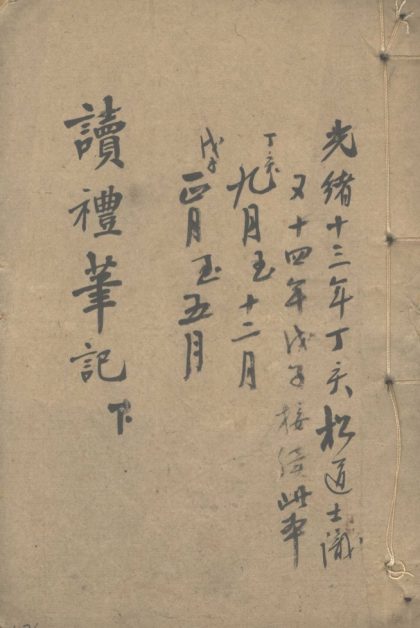 光緒十三年丁亥松道士識
又十四年戊子接續此本
丁亥
九月至十二月
戊子
正月至五月
讀禮筆記下